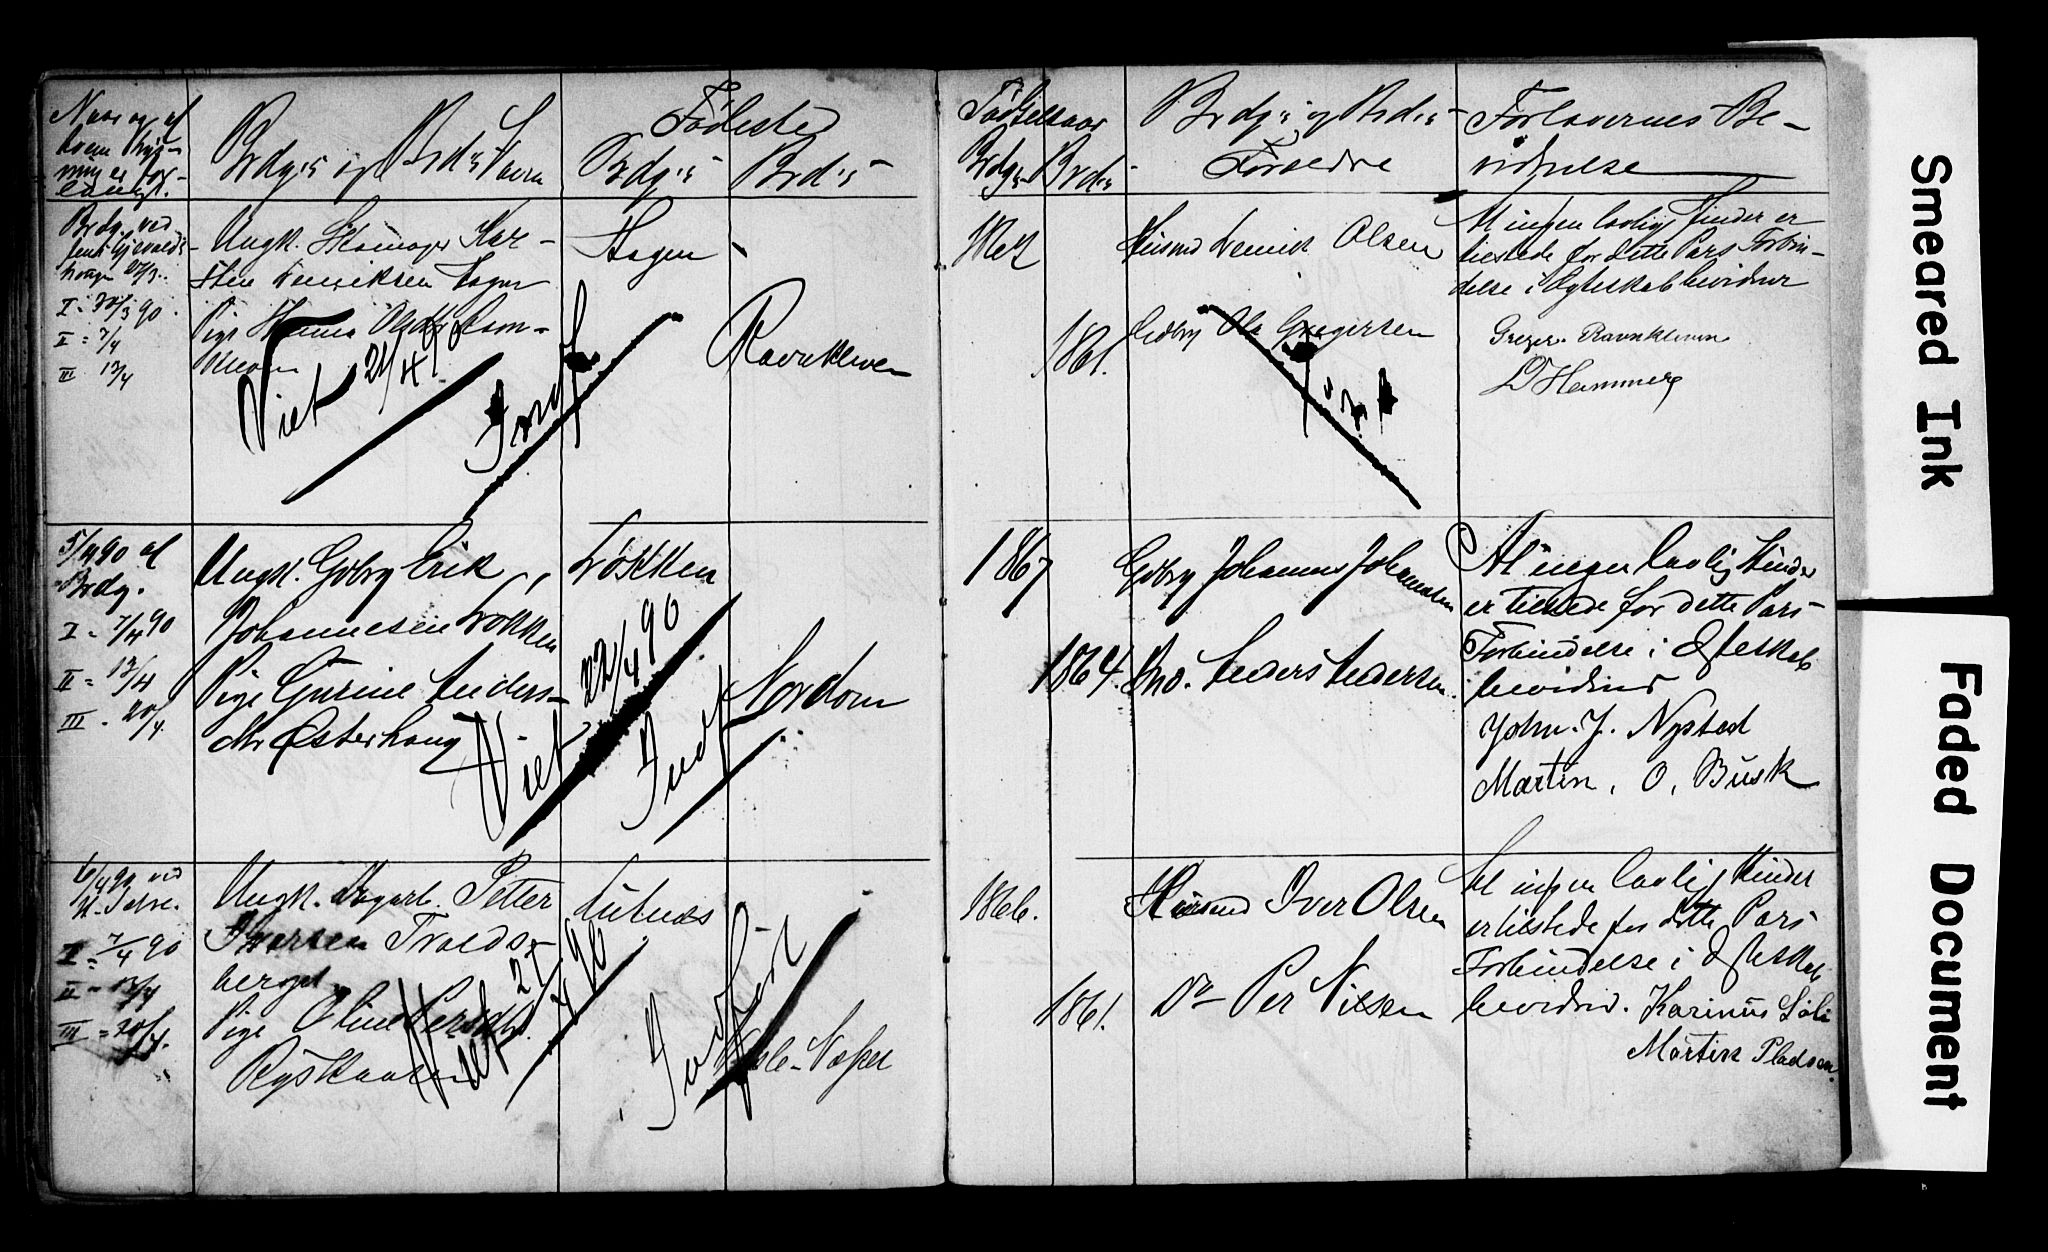 Naar og af
hvem Lys-
ning er for-
langt.
Brdg.s og Brd.s Navn
Fødested
Brdg.s Brd.s
Fødselsaar
Brdg.s Brd.s
Brdg.s og Brd.s
Forældre
Forlovernes Be-
vidnelse
Brdg. ved
27/3.
I = 30/3 90.
II = 7/4
III 13/4
Ungk. Skomager Kar-
sten Henriksen Hagen
Pige
Viet 21/4 90
Indf.
Hagen
Ravnkleven
Husmd Henrik Olsen
1861.
Gdbr Ole Gregersen
At ingen lovlig Hinder er
tilstede for dette Pars Forbin-
delse i Ægteskab bevidner
Greger Ravnkleven
O Hammer
5/4 90 af
Brdg.
I = 7/4 90
II = 13/4
III = 20/4
Ungk. Gdbr Erik
Johannesen Løkken
Pige Gurine Anders-
dtr Østerhaug
Viet 22/4 90
Indf
Løkken
Nordom
1867
1864.
Gdbr Johannes Johannesen
Hmd. Anders Andersen
At ingen lovlig Hinder
er tilstede for dette Pars
Forbindelse i Ægteskab
bevidnes
John. J. Nysted
Martin, O, Busk
6/4 90 ved
I = 7/4 90
II = 13/4
III = 20/4.
Ungk. Dagarb. Petter
Iversen Traads-
berget
Pige Oline Persdtr.
Viet 27/4 90
Indført
1866.
1861.
Husmd Iver Olsen
Do Per Nilsen
At ingen lovlig Hinder
er tilstede for dette Pars
Forbindelse i Ægteskab
bevidnes. Karinus Sæli
Martin Pladsen.
Smeared Ink
Faded Document